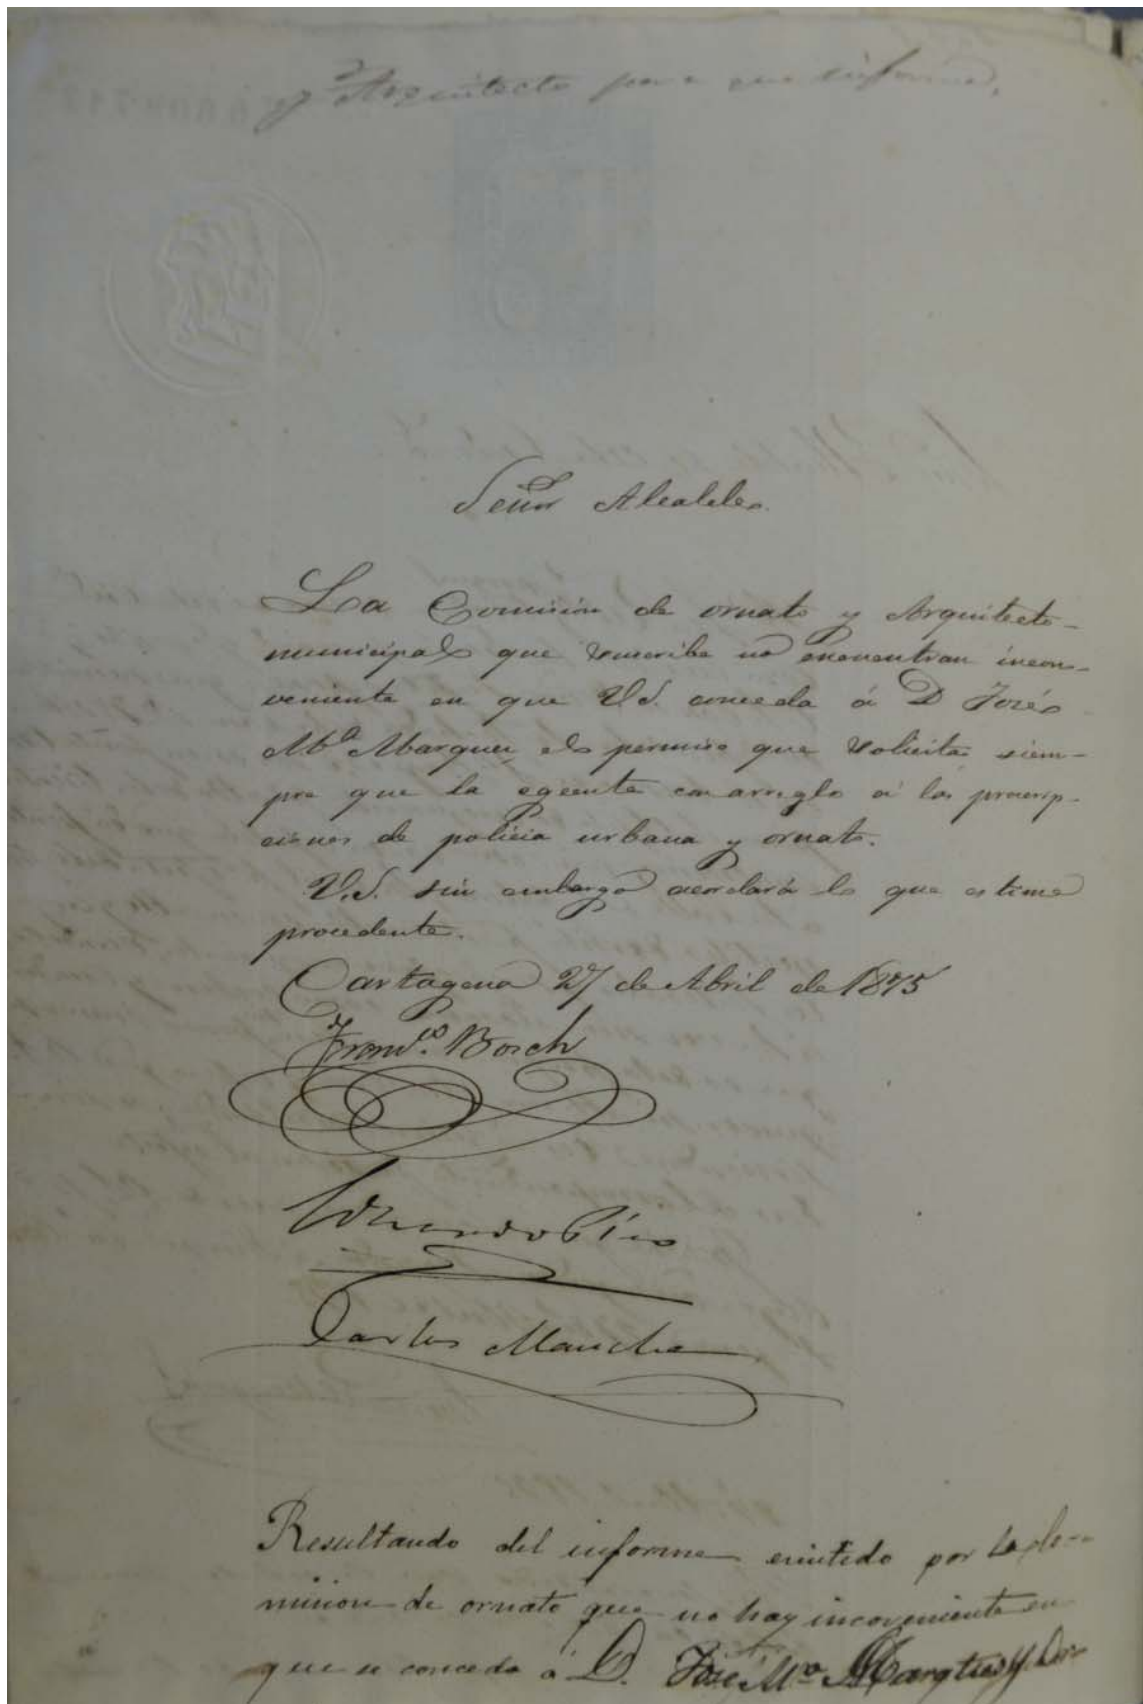 y Arquitecto para que informe,
Señor Alcalde.
La Comision de ornato y Arquitecto
municipal que suscribe no encuentran incon-
veniente en que V.S. conceda á D José
Mª Marquez el permiso que solicita siem-
pre que la egecute con arreglo á las prescrip-
ciones de policia urbana y ornato.
V.S. sin embargo acordará lo que estime
procedente.
Cartagena 27 de Abril de 1875
Franco. Bosch
Eduardo Pico
Carlos Mancha
Resultando del informe emitido por la Co-
mision de ornato que no hay incoveniente en
que se conceda á D. José Mª Marquez y